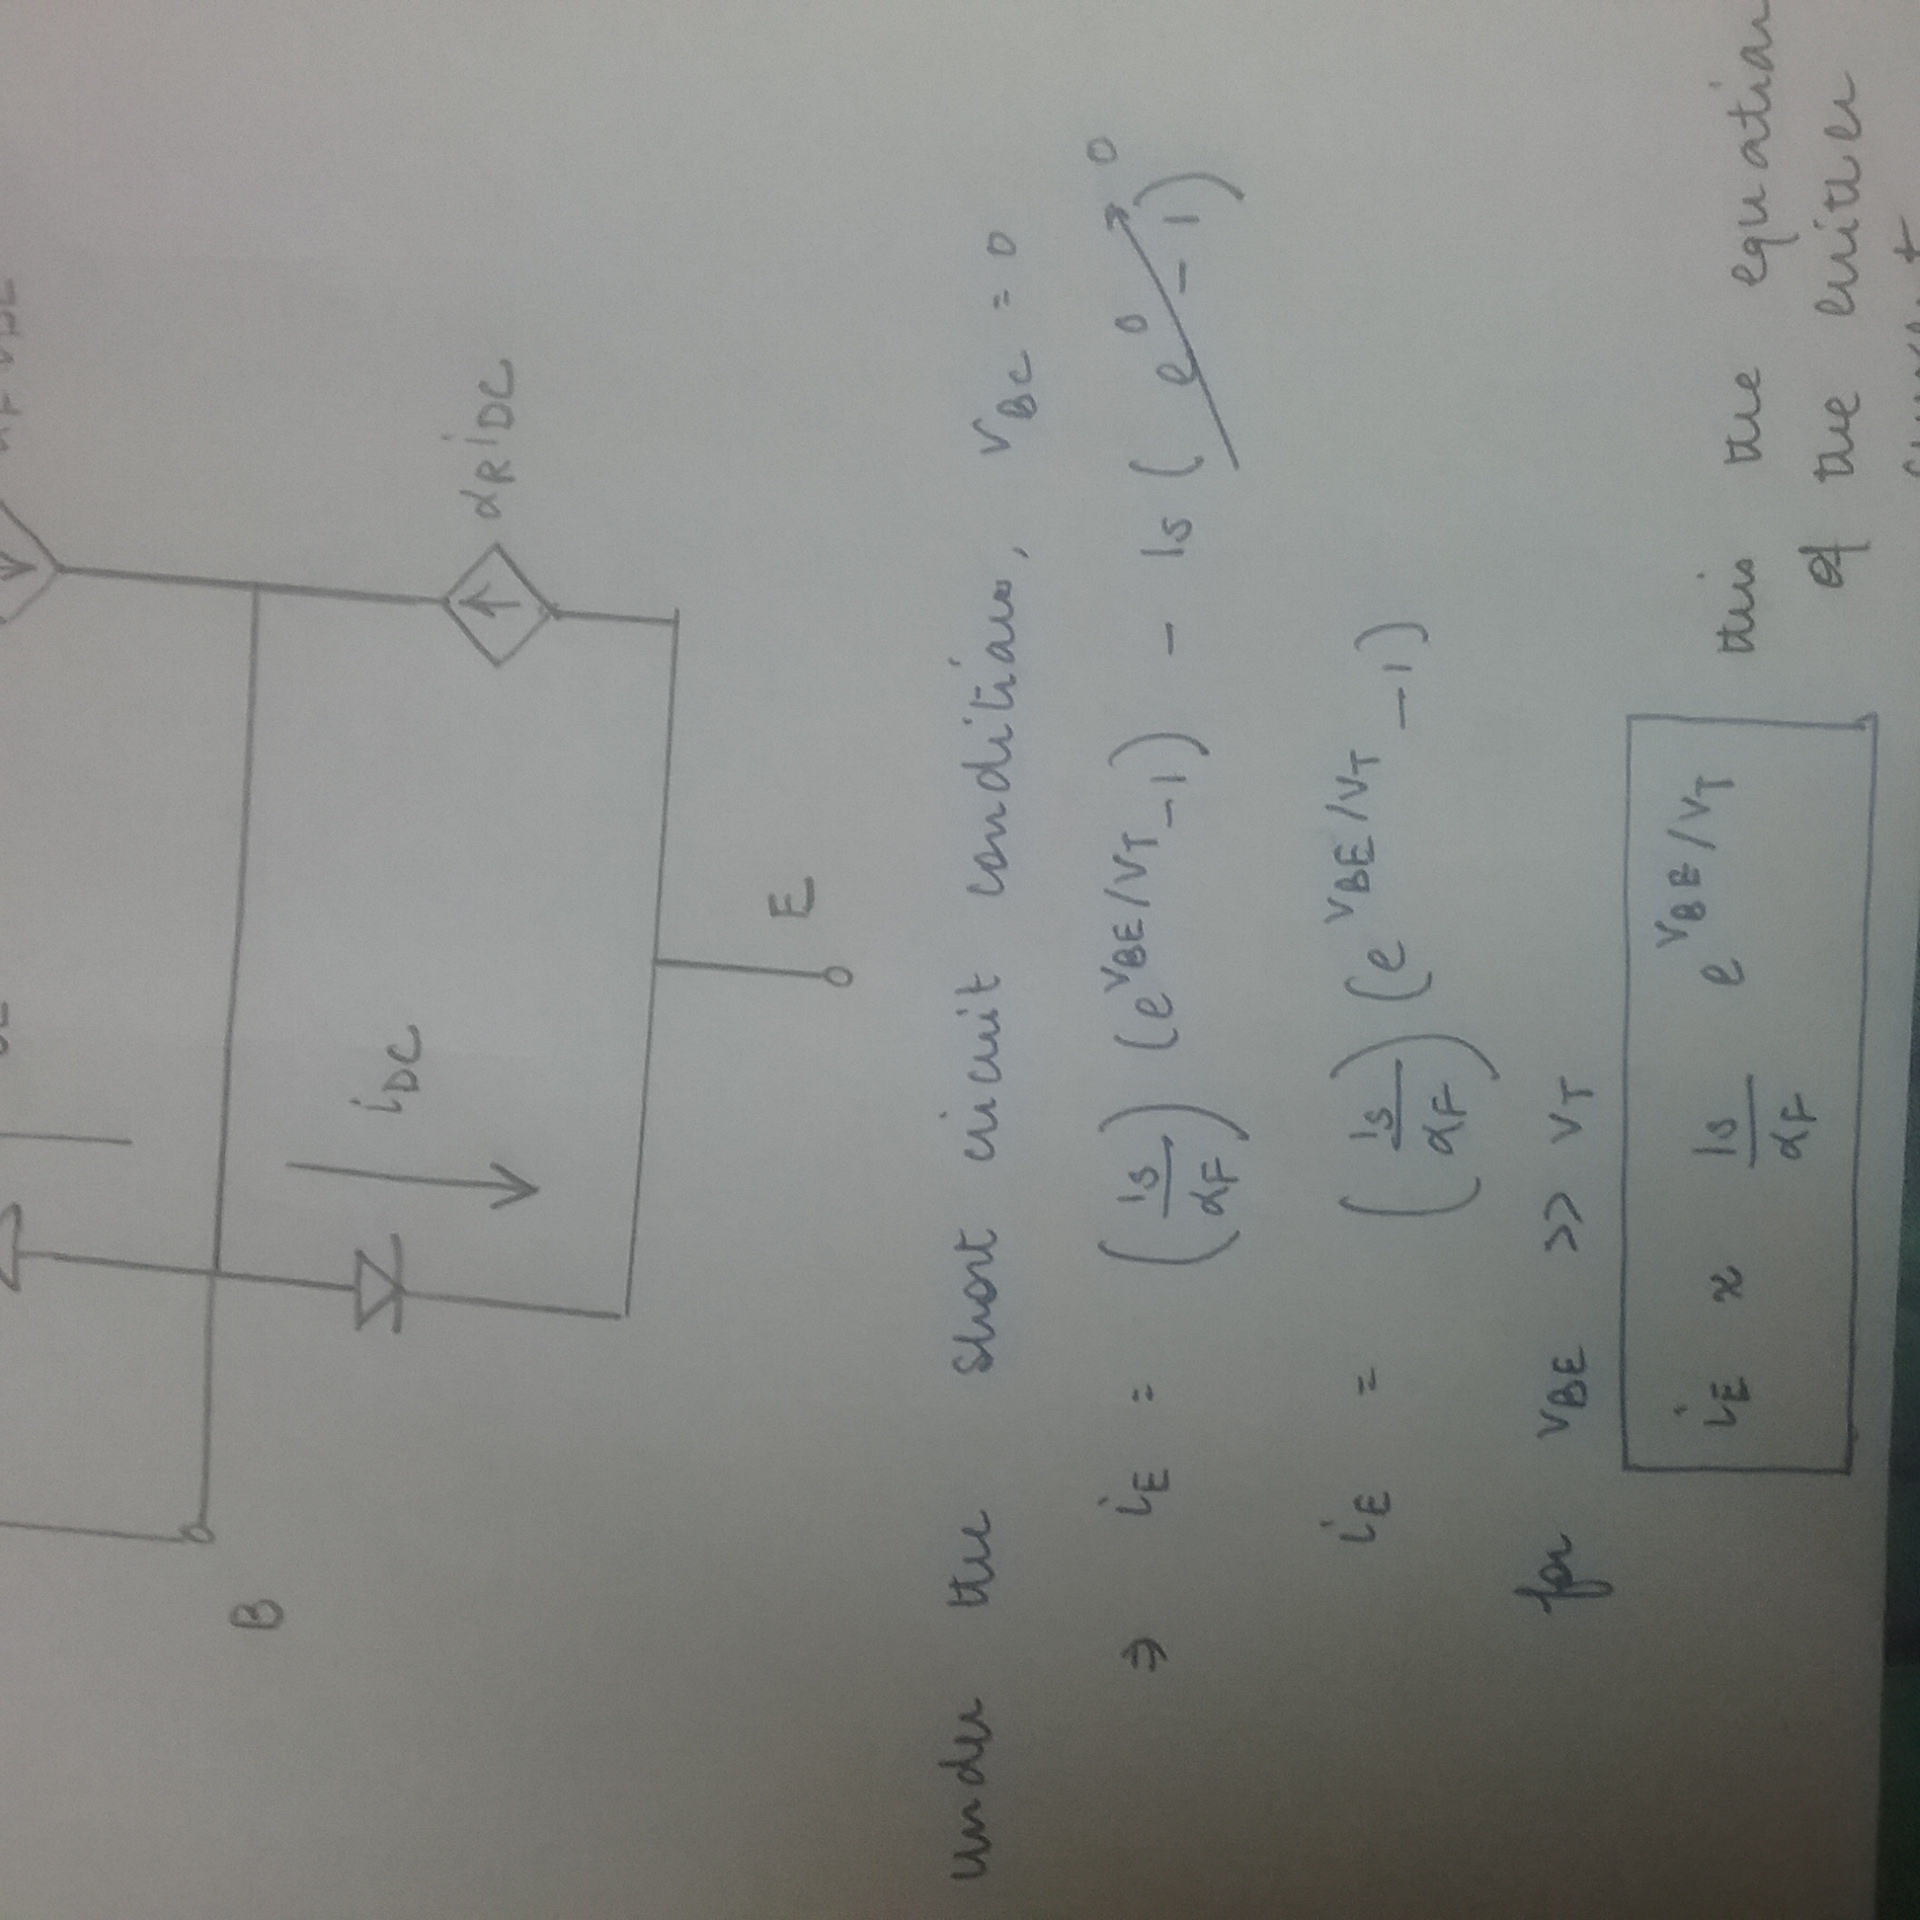 B
iDC
αRiDC
E
under the short circuit conditions, VBC = 0
⇒ iE = (Is/αF) (e^VBE/VT - 1) - Is (e^0 - 1) 0
iE = (Is/αF) (e^VBE/VT - 1)
for VBE >> VT
iE ≈ Is/αF e^VBE/VT this the equation
of the emitter